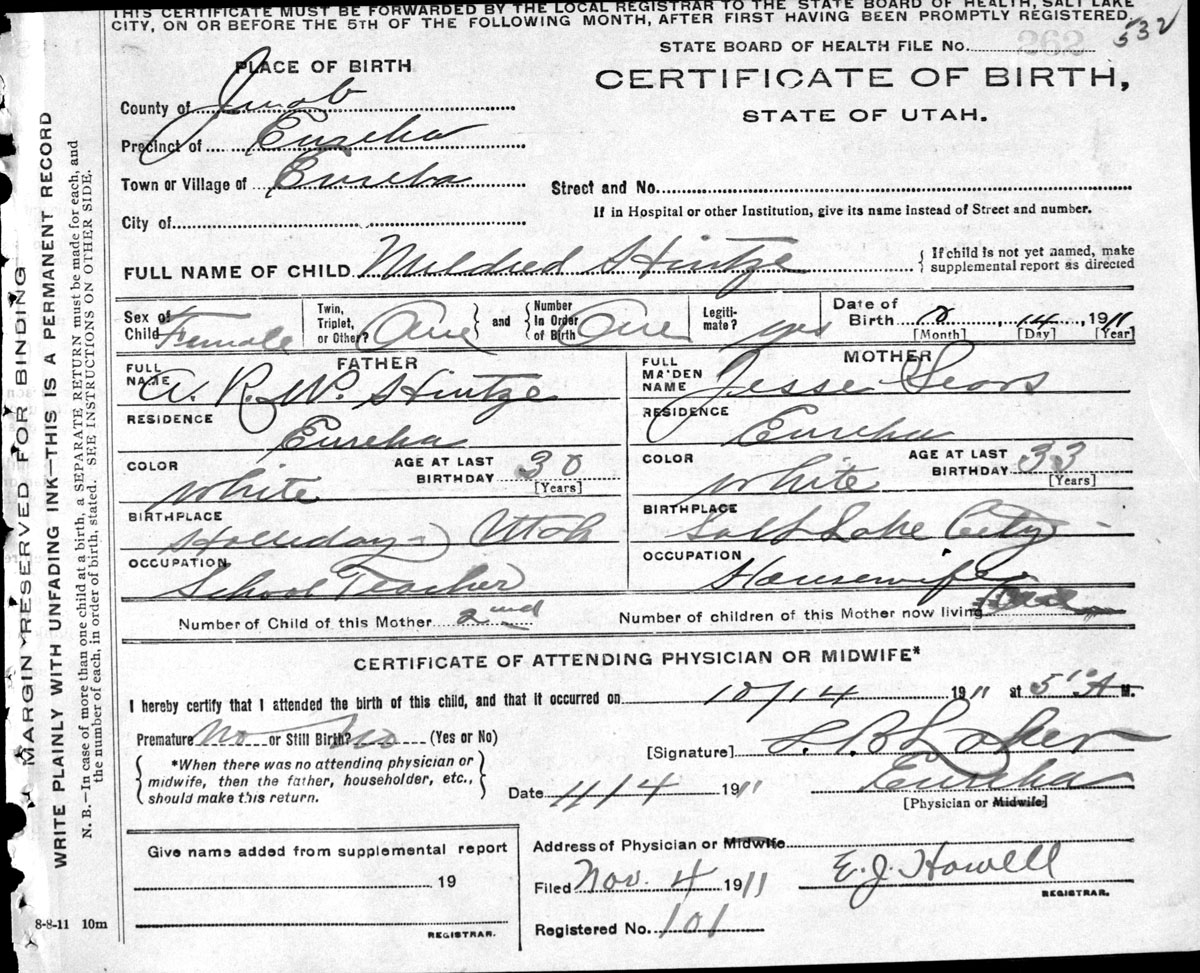 THIS CERTIFICATE MUST BE FORWARDED BY THE LOCAL REGISTRAR TO THE STATE BOARD OF HEALTH, SALT LAKE
CITY, ON OR BEFORE THE 5TH OF THE FOLLOWING MONTH, AFTER FIRST HAVING BEEN PROMPTLY REGISTERED.
532
STATE BOARD OF HEALTH FILE No. 262
PLACE OF BIRTH
CERTIFICATE OF BIRTH,
STATE OF UTAH.
County of Juab
Precinct of Eureka
Town or Village of Eureka
Street and No.
City of
If in Hospital or other Institution, give its name instead of Street and number.
FULL NAME OF CHILD Mildred Hintze
If child is not yet named, make
supplemental report as directed
Sex of Child Female
Twin, Triplet, or Other? One
and
Number In Order of Birth One
Legiti-mate? yes
Date of Birth , 14, 1911
[Month] [Day] [Year]
FATHER
FULL NAME A. R. W. Hintze
RESIDENCE
Eureka
COLOR White
AGE AT LAST BIRTHDAY 30
[Years]
BIRTHPLACE
Holliday - Utah
OCCUPATION
School Teacher
MOTHER
FULL MA'DEN NAME Jesse Sears
RESIDENCE
Eureka
COLOR White
AGE AT LAST BIRTHDAY 33
[Years]
BIRTHPLACE
Salt Lake City -
OCCUPATION
Housewife
Number of Child of this Mother 2nd
Number of children of this Mother now living
CERTIFICATE OF ATTENDING PHYSICIAN OR MIDWIFE*
I hereby certify that I attended the birth of this child, and that it occurred on 10/14 1911 at 5 A M.
Premature No or Still Birth? No (Yes or No)
*When there was no attending physician or
midwife, then the father, householder, etc.,
should make this return.
[Signature] S. B.
Eureka
Date 11/4 1911
[Physician or Midwife]
Give name added from supplemental report
19
REGISTRAR.
Address of Physician or Midwife
Filed Nov. 4 1911
E. J. Howell
REGISTRAR.
Registered No. 101
8-8-11 10m
MARGIN RESERVED FOR BINDING
WRITE PLAINLY WITH UNFADING INK—THIS IS A PERMANENT RECORD
N. B.—In case of more than one child at a birth, a SEPARATE RETURN must be made for each, and
the number of each, in order of birth, stated. SEE INSTRUCTIONS ON OTHER SIDE.